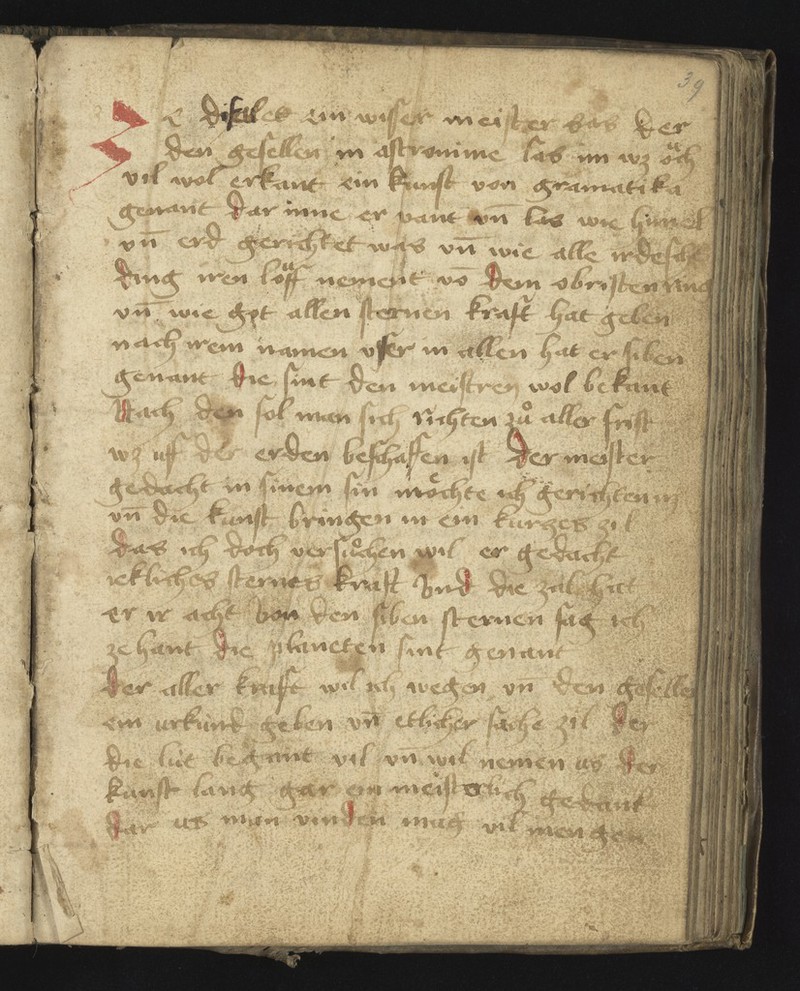 39
Ze disales ein wiser meister was der
den gesellen in astronime las im wz oͧch
vil wol erkant ein kunst von gramatika
genant dar inne er vant vn̄ las wie himel
vn̄ erd gerichtet was vn̄ wie alle irdesche
ding iren loͧff nement vō dem obristen ring
vn̄ wie got allen sternen kraft hat geben
nach irem namen vser in allen hat er siben
genant die sint den meistren wol bekant
Nach den sol man sich richten zuͦ aller frist
wz uff der erden beschaffen ist Der meister
gedacht in sinem sin moͤchte ich gerichten
vn̄ die kunst bringen in ein kurzes zil
das ich doch versuͦchen wil er gedacht
iekliches sternes kraft Vnd die zal hat
er ir acht von den siben sternen sag ich
ze hant die planeten sint genant
Der aller kraft wil ich wegen vn̄ den gesellen
ein urkund geben vn̄ etlicher sache zil Der
die lüt begant vil vn̄ wil nemen us der
kunst lang gar ein meisterlich gedank
dar us man vinden mag vil mengen